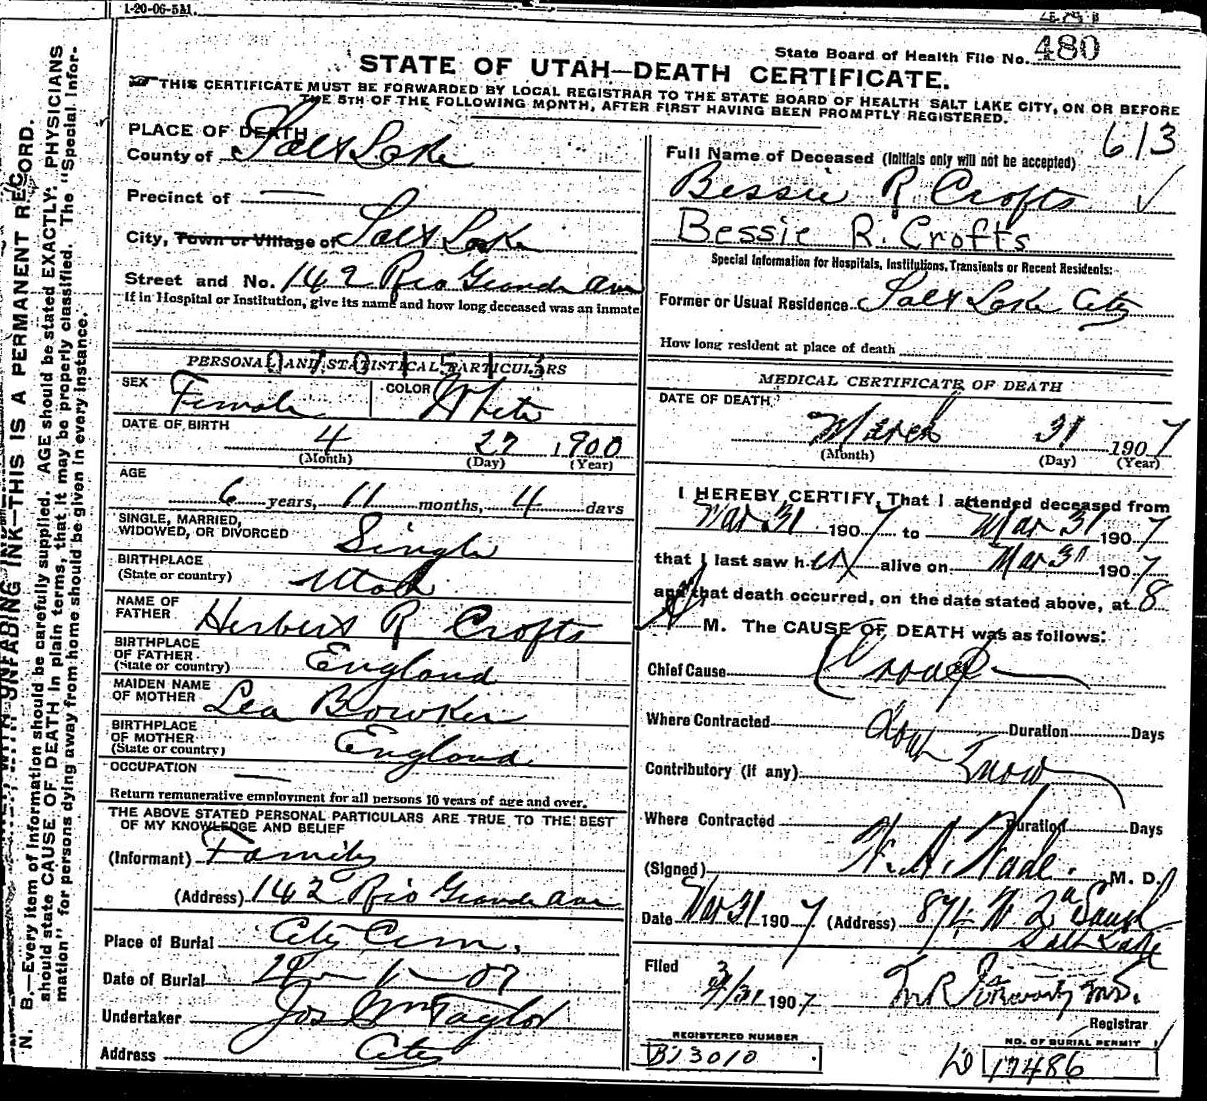 1-20-06-5M.
State Board of Health File No. 480
STATE OF UTAH—DEATH CERTIFICATE.
THIS CERTIFICATE MUST BE FORWARDED BY LOCAL REGISTRAR TO THE STATE BOARD OF HEALTH SALT LAKE CITY, ON OR BEFORE
THE 5TH OF THE FOLLOWING MONTH, AFTER FIRST HAVING BEEN PROMPTLY REGISTERED.
N. B.—Every item of information should be carefully supplied. AGE should be stated EXACTLY. PHYSICIANS
should state CAUSE OF DEATH in plain terms, that it may be properly classified. The "Special Infor-
mation" for persons dying away from home should be given in every instance.
UNFADING INK—THIS IS A PERMANENT RECORD.
PLACE OF DEATH
County of Salt Lake
Precinct of —
City, Town or Village of Salt Lake
Street and No. 142 Rio Grande Ave
If in Hospital or Institution, give its name and how long deceased was an inmate
PERSONAL AND STATISTICAL PARTICULARS
0 7 0 1 5 1 3
SEX Female COLOR White
DATE OF BIRTH
4 27 1900
(Month) (Day) (Year)
AGE
6 years, 11 months, 4 days
SINGLE, MARRIED,
WIDOWED, OR DIVORCED Single
BIRTHPLACE
(State or country) Utah
NAME OF
FATHER Herbert R Crofts
BIRTHPLACE
OF FATHER
(State or country) England
MAIDEN NAME
OF MOTHER Lea Bowker
BIRTHPLACE
OF MOTHER
(State or country) England
OCCUPATION —
Return remunerative employment for all persons 10 years of age and over.
THE ABOVE STATED PERSONAL PARTICULARS ARE TRUE TO THE BEST
OF MY KNOWLEDGE AND BELIEF
(Informant) Family
(Address) 142 Rio Grande Ave
Place of Burial City Cem.
Date of Burial 1 - 07
Undertaker Jos Wm Taylor
Address City
613
Full Name of Deceased (Initials only will not be accepted)
Bessie R Crofts ✓
Bessie R. Crofts
Special Information for Hospitals, Institutions, Transients or Recent Residents:-
Former or Usual Residence Salt Lake City
How long resident at place of death
MEDICAL CERTIFICATE OF DEATH
DATE OF DEATH
March 31 1907
(Month) (Day) (Year)
I HEREBY CERTIFY, That I attended deceased from
Mar 31 1907 to Mar 31 1907
that I last saw her alive on Mar 31 1907
and that death occurred, on the date stated above, at 8
A M. The CAUSE OF DEATH was as follows:
Chief Cause Croup
Where Contracted Duration Days
Contributory (if any)
Where Contracted Duration Days
(Signed) W. A. Wade. M. D.
Date Mar 31 1907 (Address) W 2nd South
Salt Lake
Filed 3/31 1907
Registrar
REGISTERED NUMBER
B23010
NO. OF BURIAL PERMIT
D 17486